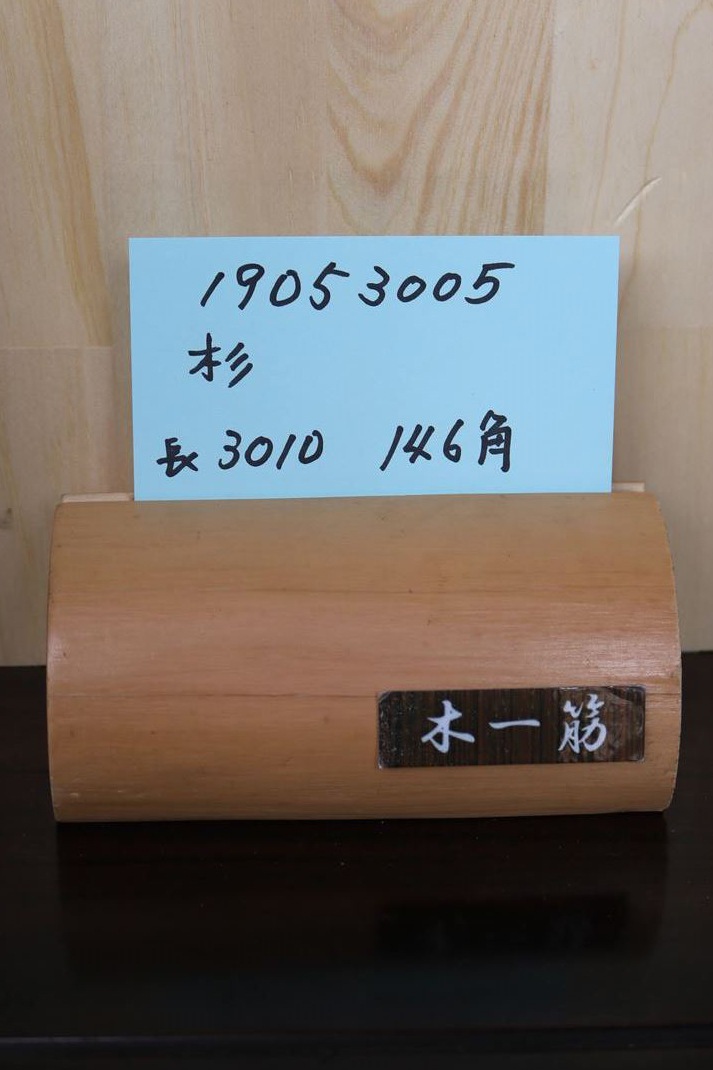 19053005
杉
長3010 146角
木一筋